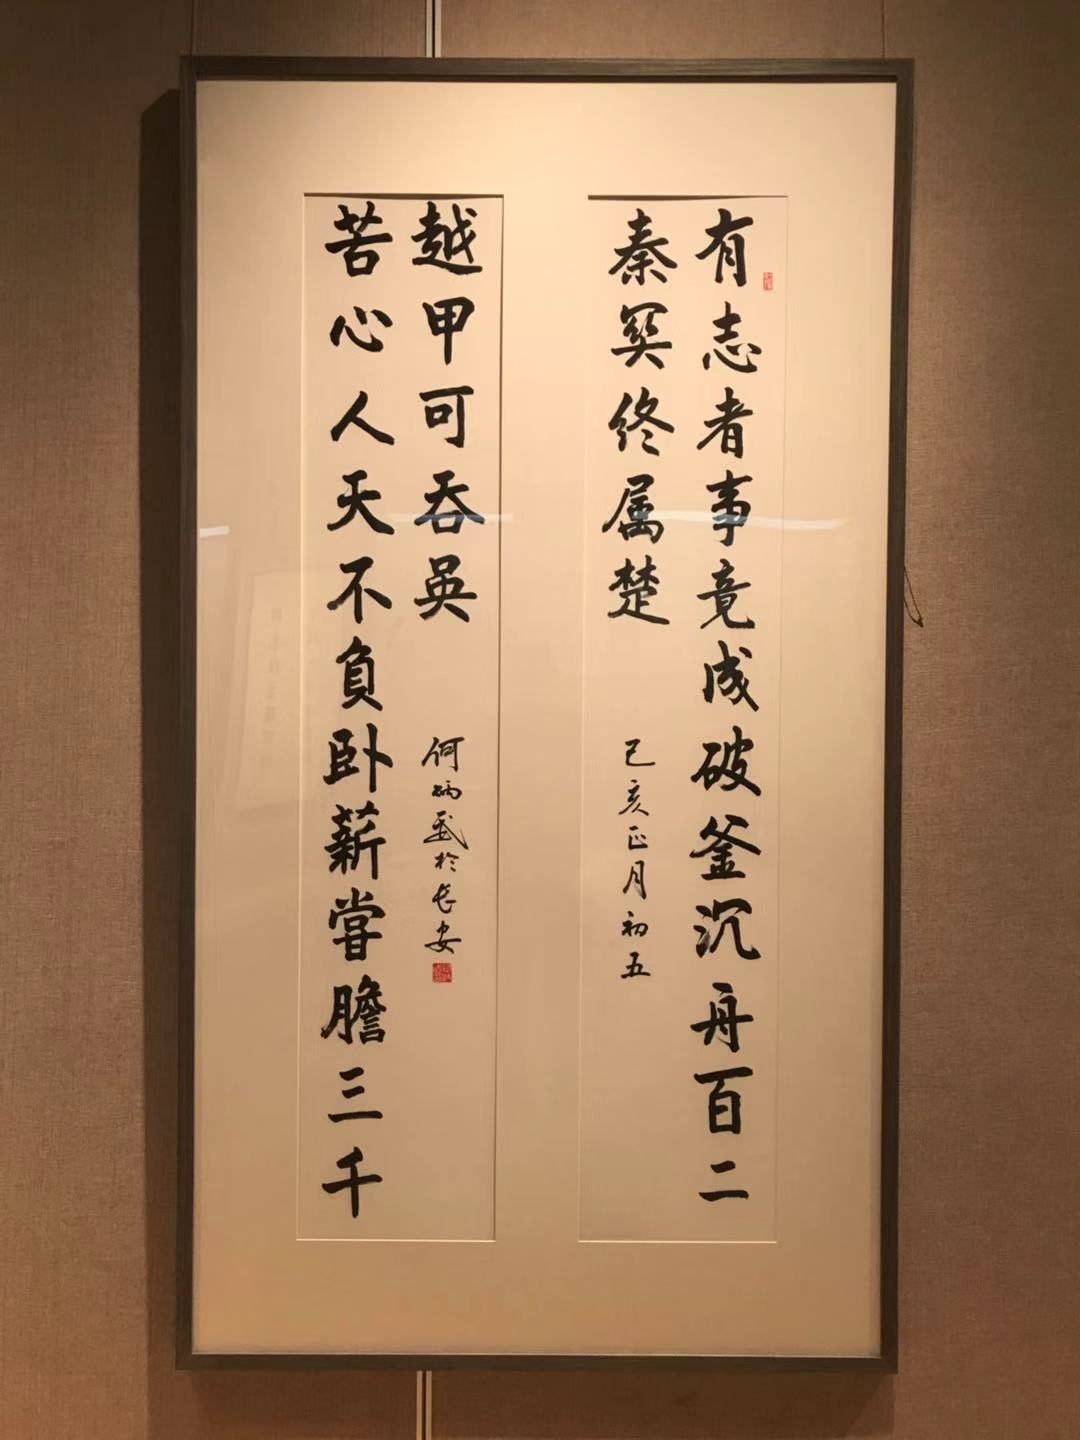 有志者事竟成破釜沉舟百二
秦関终属楚
己亥正月初五
苦心人天不負卧薪嘗膽三千
越甲可吞吳
何炳武於长安